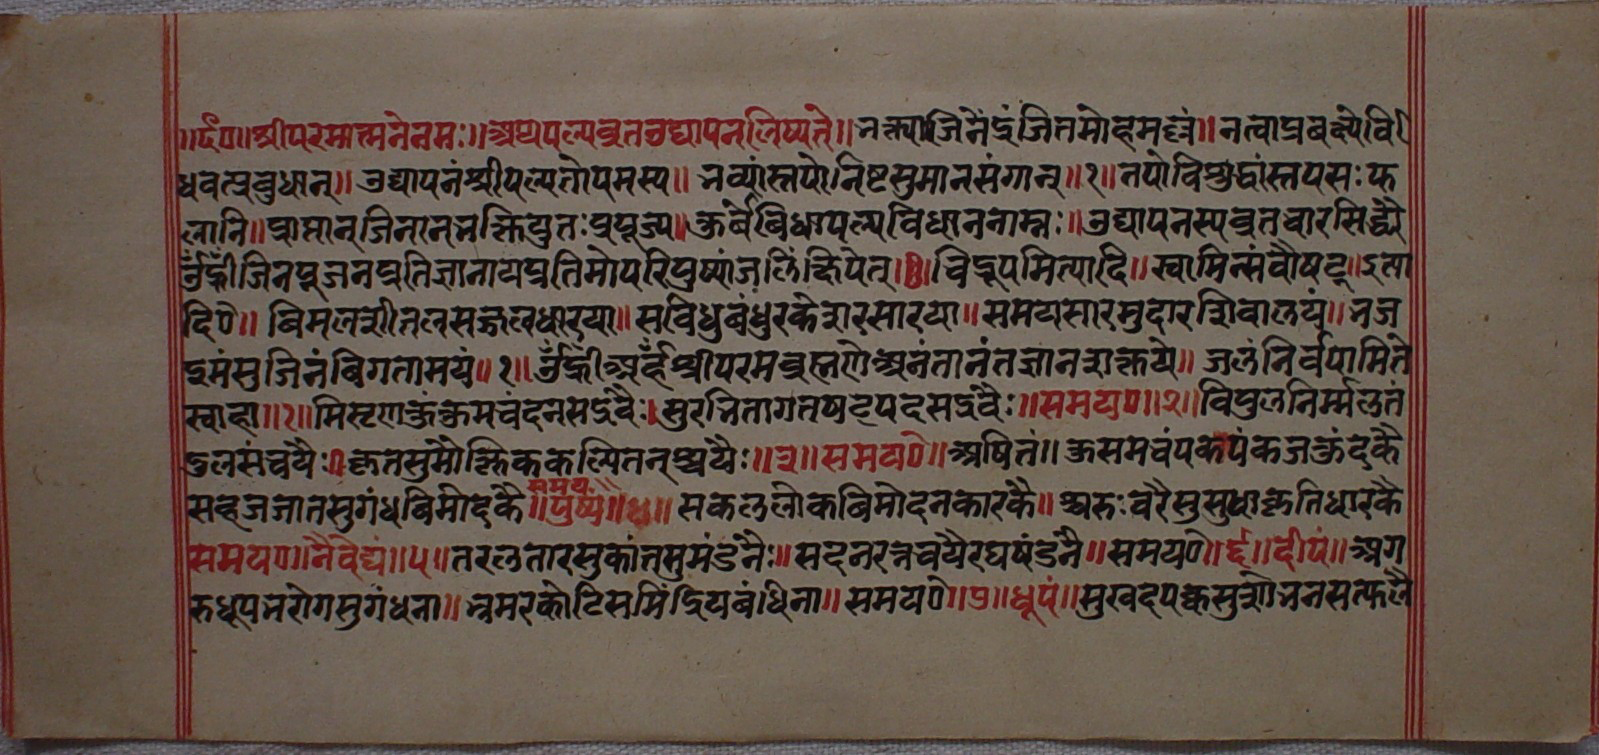 ॥र्द०॥श्रीपरमात्मनेनमः॥अथपल्यव्रतउद्यापनलिष्यते॥भक्त्याजिनेंद्रंजितमोहमल्लं॥नत्वाप्रबक्ष्येवि
धवत्प्रबुधान्॥उद्यापनंश्रीपल्यतोपमस्य॥भव्यांस्तपोनिष्टसुमानसंगान्॥१॥तपोविशुद्धांस्तपसःफ
लानि॥प्राप्तान्जिनान्भक्तियुतःप्रपूज्य॥कुर्बेबिधापल्यविधाननाम्नः॥उद्यापनस्यव्रतवारसिद्ध्यै
ॐह्रीँजिनपूजनप्रतिज्ञानायप्रतिमोपरिपुष्पांजलिंक्षिपेत्॥चिद्रूपमित्यादि॥स्वामिन्संवौषट्॥इत्या
दि०॥बिमलशीतलसज्जलधारया॥सविधुबंधुरकेशरसारया॥समयसारमुदारशिवालयं॥भज
इमंसुजिनंबिगतामयं॥१॥ॐह्रीँअर्हँश्रीपरमब्रह्मणेअनंतानंतज्ञानशक्तये॥जलंनिर्वपामिते
स्वाहा॥१॥मिस्टणकुंक्रमचंदनसद्रवैः॥सुरभितागतषट्पदसद्रवैः॥समय०॥२॥विपुलनिर्म्मलतं
डुलसंचयैः॥कृतसुमौक्तिककल्पितनश्चयैः॥३॥समय०॥अषितं॥कुसमचंपकपंकजकुंदकै
सहजजातसुगंधबिमोदकै॥समय॥पुष्पं॥४॥सकललोकबिमोदनकारकै॥श्चरुःवरैसुसुधाकृतिधारकै
समय०॥नैवेद्यं॥५॥तरलतारसुकांतसुमंडनैः॥सदनरत्नचयैरघषंडनै॥समय०॥६॥दीपं॥अग
रुधूपभरोगसुगंधना॥भ्रमरकोटिसमिंद्रियबंधिना॥समय०॥७॥धूपं॥सुखदपक्वसुशोभनसत्फलै